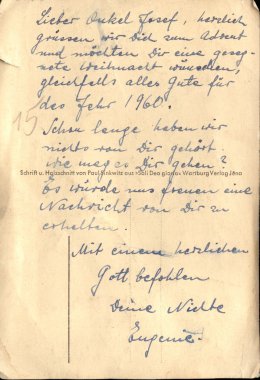 Lieber Onkel Josef, herzlich
grüssen wir Dich zum Advent
und möchten Dir eine geseg-
nete Weihnacht wünschen,
gleichfalls alles Gute für
das Jahr 1960.
15
Schon lange haben wir
nichts von Dir gehört.
Wie mag es Dir gehen?
Schrift u. Holzschnitt von Paul Sinkwitz aus (Soli Deo gloria) Wartburg Verlag Jena
Es würde uns freuen eine
Nachricht von Dir zu
erhalten.
Mit einem herzlichen
Gott befohlen
Deine Nichte
Eugenie.